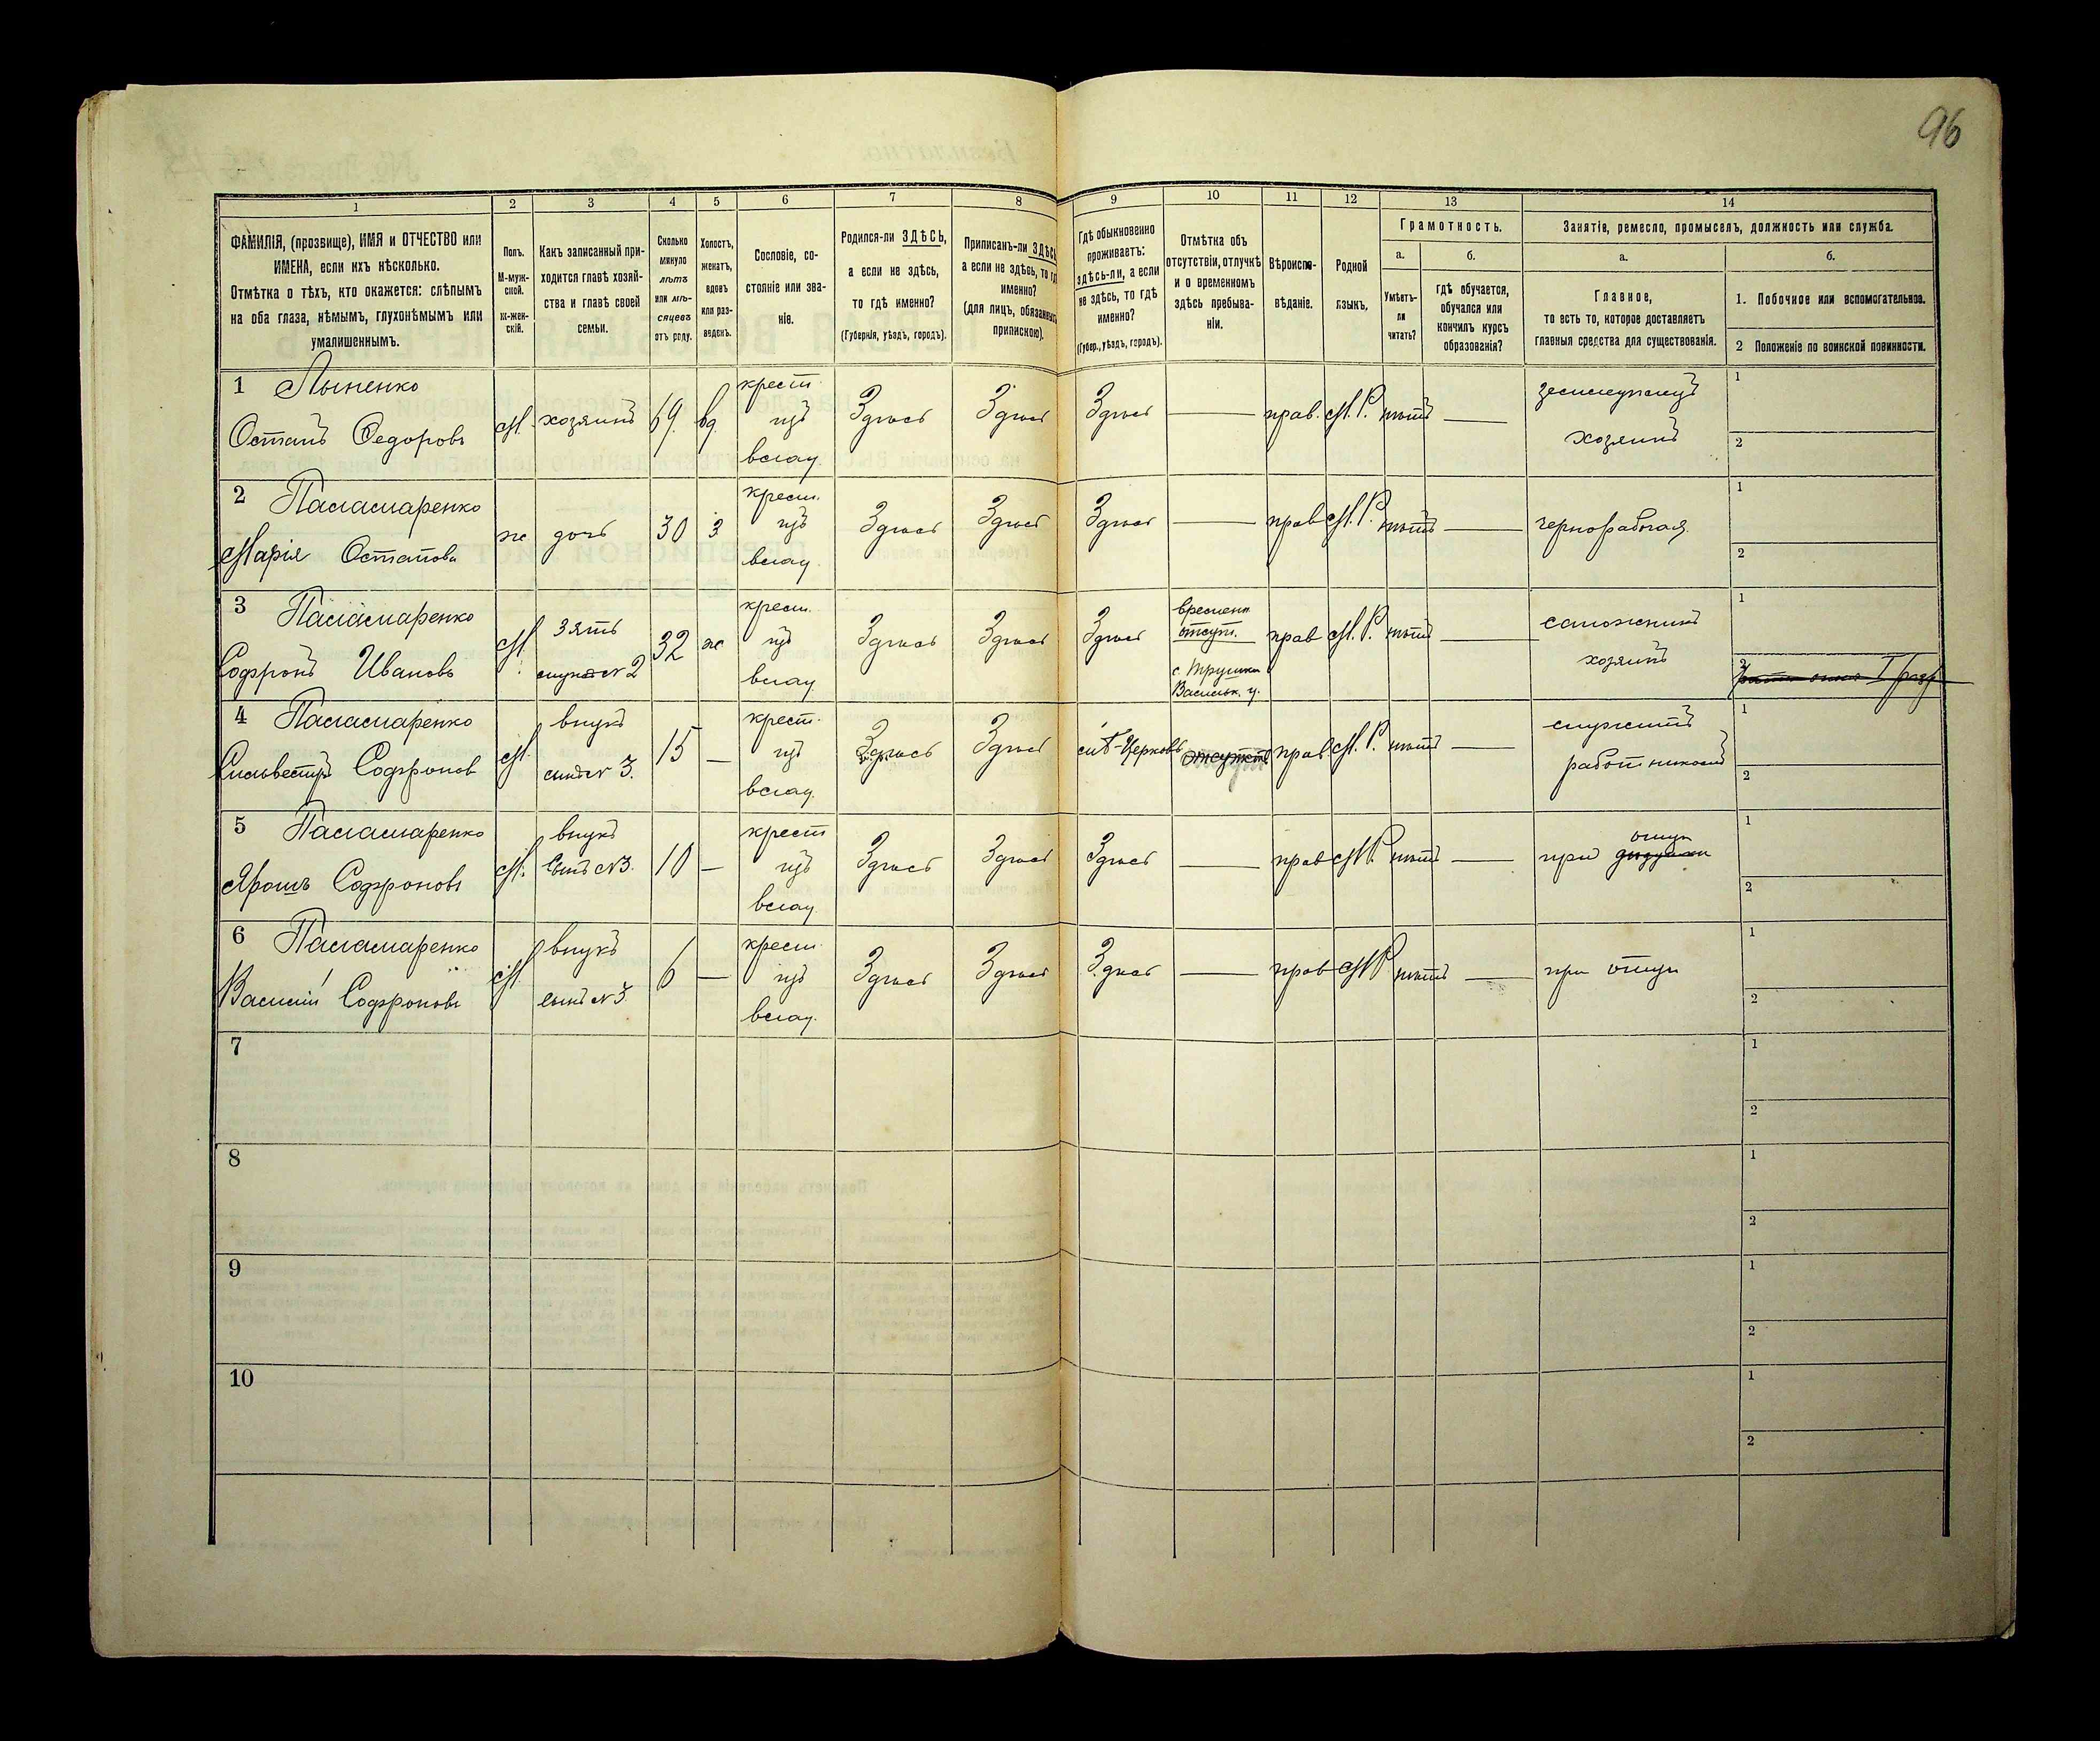 96
1 2 3 4 5 6 7 8 9 10 11 12 13 14
ФАМИЛІЯ, (прозвище), ИМЯ и ОТЧЕСТВО или
ИМЕНА, если ихъ нѣсколько.
Отмѣтка о тѣхъ, кто окажется: слѣпымъ
на оба глаза, нѣмымъ, глухонѣмымъ или
умалишеннымъ.
Полъ.
М-муж-
ской.
Ж-жен-
скій.
Какъ записанный при-
ходится главѣ хозяй-
ства и главѣ своей
семьи.
Сколько
минуло
лѣтъ
или мѣ-
сяцевъ
отъ роду.
Холостъ,
женатъ,
вдовъ
или раз-
веденъ.
Сословіе, со-
стояніе или зва-
ніе.
Родился-ли ЗДѢСЬ,
а если не здѣсь,
то гдѣ именно?
(Губернія, уѣздъ, городъ).
Приписанъ-ли ЗДѢСЬ
а если не здѣсь, то гдѣ
именно?
(для лицъ, обязанныхъ
припискою).
Гдѣ обыкновенно
проживаетъ:
здѣсь-ли, а если
не здѣсь, то гдѣ
именно?
(Губер., уѣздъ, городъ).
Отмѣтка объ
отсутствіи, отлучкѣ
и о временномъ
здѣсь пребыва-
ніи.
Вѣроиспо-
вѣданіе.
Родной
языкъ.
Грамотность.
а.
Умѣетъ-
ли
читать?
б.
гдѣ обучается,
обучался или
кончилъ курсъ
образованія?
Занятіе, ремесло, промыселъ, должность или служба.
а.
Главное,
то есть то, которое доставляетъ
главныя средства для существованія.
б.
1. Побочное или вспомогательное.
2 Положеніе по воинской повинности.
1 Лыненко
Остапъ Федоровъ
М. хозяинъ 69 вд. крест. изъ влад. Здѣсь Здѣсь Здѣсь — прав. М.Р. нѣтъ —
хозяинъ
1
2
2 Паламаренко
Марія Остапова
ж дочь 30 з крест. изъ влад. Здѣсь Здѣсь Здѣсь — прав М.Р. нѣтъ — чернорабочая
1
2
3 Паламаренко
Софронъ Ивановъ
М. зять
мужъ N 2
32 ж крест. изъ влад. Здѣсь Здѣсь Здѣсь
времен.
отсут.
с. Трушки
Васильк. у.
прав М.Р. нѣтъ —
сапожникъ
хозяинъ
1
2
4 Паламаренко
Сильвестръ Софронов
М. внукъ
сынъ N 3.
15 — крест. изъ влад. Здѣсь Здѣсь Церковь прав. М.Р. нѣтъ —
служитъ
работникомъ
1
2
5 Паламаренко
Ярошъ Софроновъ
М. внукъ
сынъ N3.
10 — крест изъ влад. Здѣсь Здѣсь Здѣсь — прав М.Р. нѣтъ —
отцѣ
при дѣдушки
1
2
6 Паламаренко
Василій Софроновъ
М. внукъ
сынъ N 3
6 — крест. изъ влад. Здѣсь Здѣсь Здѣсь — прав М.Р. нѣтъ — при отцѣ
1
2
7
1
2
8
1
2
9
1
2
10
1
2